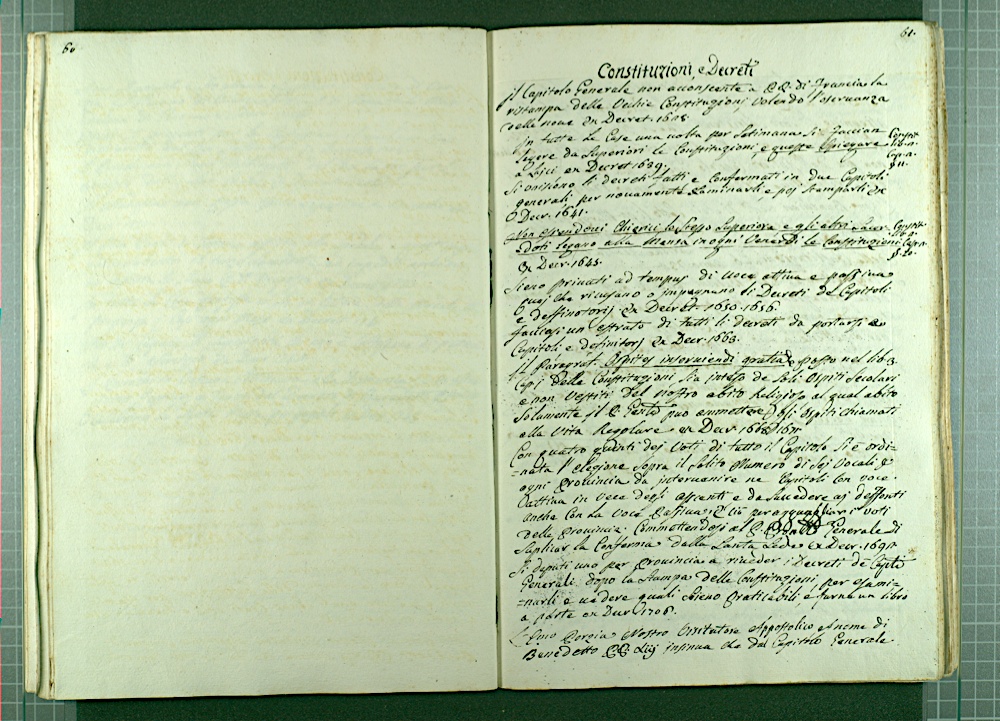 60
61.
Constituzioni, e Decreti
il Capitolo Generale non acconsente a PP. di Francia la
ristampa delle Vechie Constituzioni volendo l'oservanza
delle nove ex Decret. 1608
in tutte le Case una volta per Setimana si faccian
legere da Superiori le Constituzioni, e queste spiegare
a Laici ex Decret 1639.
Constit.
lib.
Cap. 2.
§ 11.
Si uniscono li decreti fatti e Confermati in due Capitoli
generali per novamente Esaminarli, e poi stamparli ex
Decr. 1641.
Non essendovi Chierici lo stesso Superiore e gli altri Sacer
doti legano alla Mensa in ogni Venerdi le Constituzioni
Ex Decr. 1645.
Constit.
Cap. 2.
§. 20.
Sieno privati ad tempus di voce attiva e passiva
quei che ricusano o impugnano li Decreti del Capitoli
e deffinitorij ex Decret. 1650. 1656.
facciasi un estrato di tutti li decreti da portarsi a
Capitoli e definitorj ex Decr. 1663.
il Paragraf. Ospites inserviendi gratia posto nel lib. 3
Cap. j delle Constituzioni sia inteso de soli Ospiti Secolari
e non vestiti del nostro abito Religioso al qual abito
Solamente il P. Genle può ammettere gli Ospiti chiamati
alla vita Regolare ex Decr. 1668
Con quatro quinti dei voti di tutto il Capitolo si è ordi=
=nata l'elezione sopra il solito Numero di sei vocali p
ogni Provincia da intervenire ne Capitoli con voce
attiva in vece degli assenti e da succedere ai deffonti
anche con la voce Passiva: e ciò per agguagliar i voti
delle Provincie. Commettendosi al P. Generale di
Supliar la Conferma della Santa Sede ex Decr. 1691.
Si deputi uno per Provincia a riveder i Decreti de Capli
Generali dopo la Stampa delle Constituzioni, per esami=
=narli e vedere quali sieno Praticabili e farne un libro
a parte ex Decr. 1706.
L'Emo Nostro Visitatore Appostolico a nome di
Benedetto insinua che dal Capitolo Generale